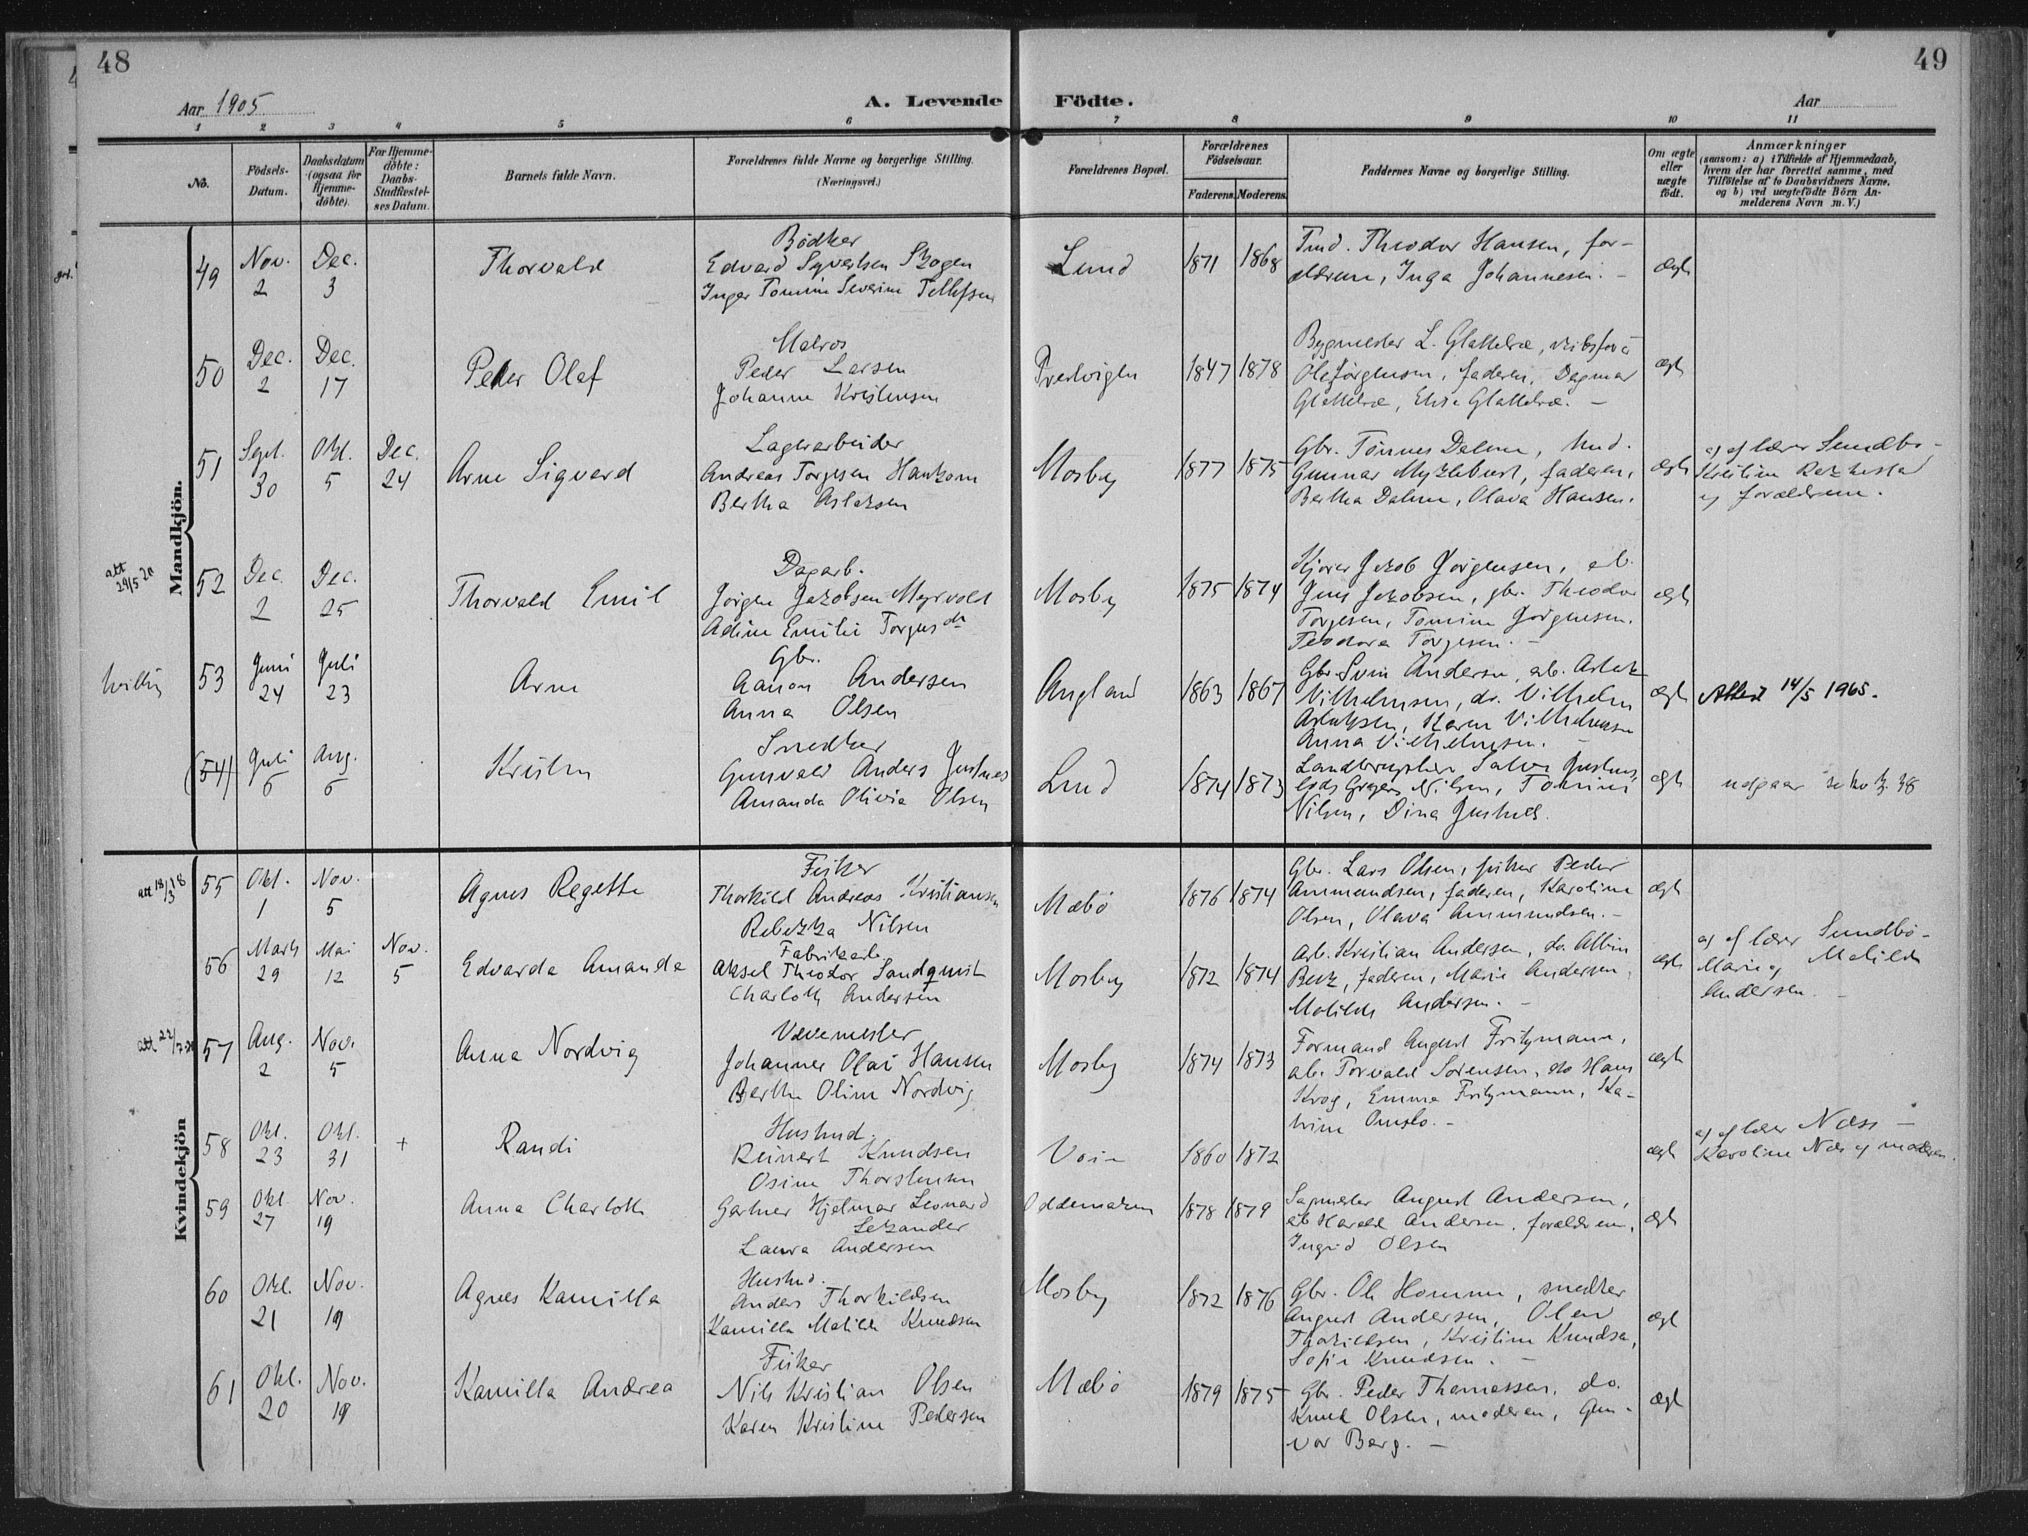 48
49
Aar 1905
A. Levende
Födte.
Aar
1 2 3 4 5 6 7 8 9 10 11
No.
Födsels-
Datum.
Daabsdatum
(ogsaa for
Hjemme-
döbte).
For Hjemme-
döbte:
Daabs-
Stadfæstel-
ses Datum.
Barnets fulde Navn.
Forældrenes fulde Navne og borgerlige Stilling.
(Næringsvei.)
Forældrenes Bopæl.
Forældrenes
Födselsaar.
Faderens. Moderens.
Faddernes Navne og borgerlige Stilling.
Om ægte
eller
uægte
födt.
Anmærkninger
(saasom: a) i Tilfælde af Hjemmedaab,
hvem der har forrettet samme, med
Tilföielse af to Daabsvidners Navne,
og b) ved uægtefödte Börn An-
melderens Navn m. V.)
Mandkjön.
49
Nov.
2
Dec.
3
Thorvald
Bødker
Edvard Syvertsen Skogen
Inger Tomine Severine Tellefsen
Lund
1871 1868
Theodor Hansen, for-
ældrene, Inga Johannesen. -
ægte
50
Dec.
2
Dec.
17
Peder Olaf
Matros
Peder Larsen
Johanne Kristensen
1847 1878
Bygmester L. Glattetræ,
Ole Jörgensen, faderen, Dagmar
Glattetræ, Elise Glattetræ. -
ægte
51
Sept.
30
Okt.
5
Dec.
24
Arne Sigvard
Lagerarbeider
Andreas Torgesen
Bertha Aslaksen
Mosby
1877 1875
Gbr. Tønnes Dalene,
Gunnar Myklebust, faderen,
Bertha Dalene, Olava Hansen.
ægte
af lærer Sundbø -
Kristine
og forældrene.
att
29/5 20
52
Dec.
2
Dec.
25
Thorvald Emil
Dagarb.
Jörgen Jakobsen Myrvold
Adine Emilie Torgusdtr
Mosby
1875 1874
Jakob Jörgensen, arb.
Jens Jakobsen, gbr. Theodor
Torgesen, Tomine Jörgensen.
Teodora Torgesen. -
ægte
53
Juni
24
Juli
23
Arne
Gbr.
Aanon Andersen
Anna Olsen
Augland
1863 1867
Gbr. Sven Andersen, arb. Aslak
Vilhelmsen, do. Vilhelm
Aslaksen, Karen Vilhelmsen
Anna Vilhelmsen.
ægte
Attest 14/5 1965.
(54)
Juli
6
Aug.
6
Kristen
Snedker
Gunvald Anders Justnes
Amanda Olivia Olsen
Lund
1874 1873
Nilsen, Tomine
Nilsen, Dina Justnes.
ægte
udgaar
Kvindekjön
att 18/3 18
55
Okt.
1
Nov.
5
Agnes Regette
Fisker
Thorkild Andreas Kristiansen
Rebekka Nilsen
Mæbö
1876 1874
Gbr. Lars Olsen, fisker Peder
Ammundsen, faderen, Karoline
Olsen, Olava Ammundsen. -
ægte
56
Marts
29
Mai
12
Nov.
5
Edvarda Amanda
Fabrikarb
Aksel Theodor Sandquist
Charlotte Andersen
Mosby
1872 1874
Arb. Kristian Andersen, do. Albin
Berk, faderen, Marie Andersen,
Matilde Andersen. -
ægte
af lærer Sundbø -
Marie og Matilde
Andersen. -
att 22/7
57
Aug.
2
Nov.
5
Anna Nordvig
Vævemester
Johannes Olai Hansen
Berthe Oline Nordvig
Mosby
1874 1873
Formand August Fritzmann,
arb. Torvald Sörensen, do Hans
Krog, Emma Fritzmann, Ka-
trine Omslo. -
ægte
58
Okt.
23
Okt.
31
+
Randi
Husmd.
Reinert Knudsen
Osine Thorstensen
Voie
1860 1872
ægte
af lærer Næss -
Karoline Næs og moderen.
59
Okt
27
Nov.
19
Anna Charlotte
Gartner Hjelmar Leonard
Lekander
Laura Andersen
Oddernæs
1878 1879
Sagmester August Andersen,
arb Harald Andersen, forældrene,
Ingrid Olsen
ægte
60
Okt.
21
Nov.
19
Agnes Kamilla
Husmd.
Anders Thorkildsen
Kamilla Matilde Knudsen
Mosby
1872 1876
Gbr. Ole Homme, snedker
August Andersen, Olene
Thorkildsen, Kristine Knudsen,
Sofie Knudsen. -
ægte
61
Okt.
20
Nov.
19
Kamilla Andrea
Fisker
Nils Kristian Olsen
Karen Kristine Pedersen
Mæbö
1879 1875
Gbr. Peder Thomassen, do.
Knud Olsen, moderen, Gun-
vor Berg. -
ægte